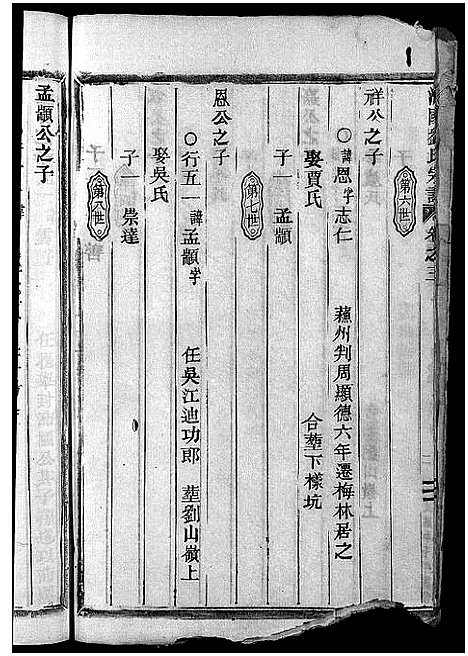 劉氏宗譜 卷之三
第六世
祥公之子
諱恩字志仁 蘓州判周顯德六年遷梅林居之
娶賈氏 合塟下樣坑
子一 孟顓
第七世
恩公之子
行五一諱孟顓字 任吳江迪功郎 塟劉山嶺上
娶吳氏
子一 崇達
第八世
孟顓公之子